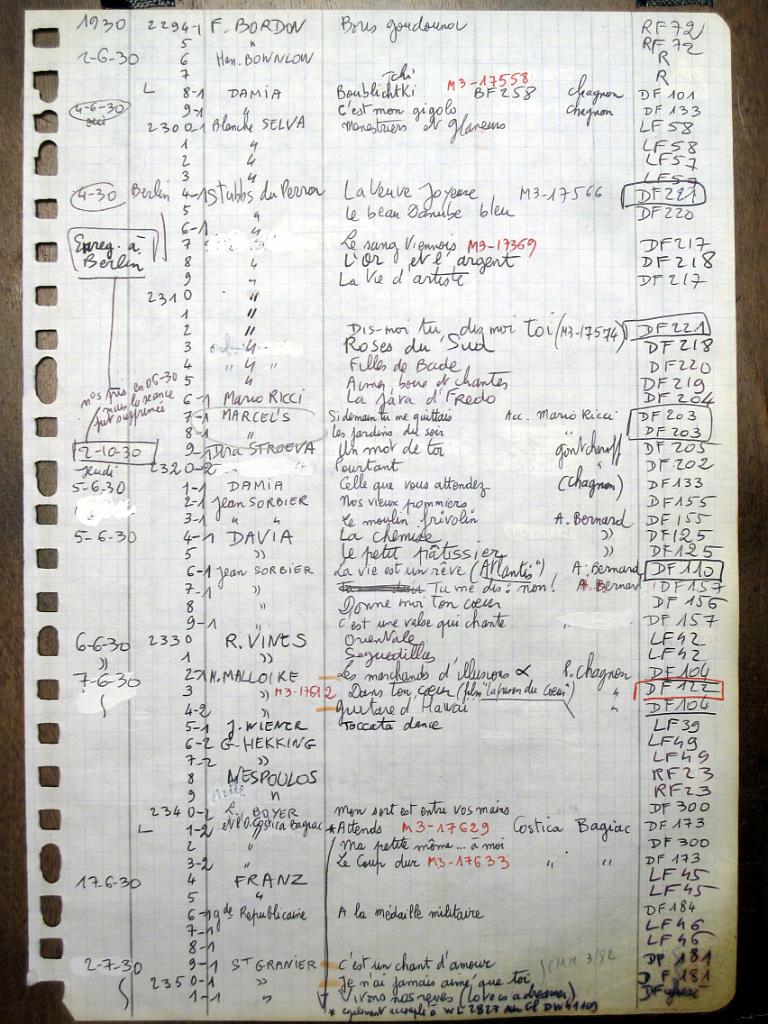 1930 2294-1 F. BORDON Boris goudounov RF 72
5 " RF 72
2-6-30 6 Han. BOWNLOW R
7 R
8-1 DAMIA Boublichtki Tchi M3-17558 BF 258 Chagnon DF 101
4-6-30 9-1 " C'est mon gigolo chagnon DF 133
2300-1 Blanche SELVA Menestriers et glaneurs LF 58
1 " LF 58
2 " LF 57
3 " LF 57
4-30 Berlin 4-1 Stubbs du Perron La Veuve Joyeuse M3-17566 DF 221
5 " Le beau Danube bleu DF 220
6-1 "
Enreg. à Berlin 7 " Le sang Viennois M3-17369 DF 217
8 " L'Or et l'argent DF 218
9 " La Vie d'artiste DF 217
2310 "
1 "
2 " Dis-moi tu, dis moi toi (M3-17574) DF 221
3 " Roses du Sud DF 218
4 " " " Filles de Bade DF 220
5 " Aimer, boire et chanter DF 219
nos pris en 06-30 mais la séance fut supprimée
6-1 Mario RICCI La java d'Fredo DF 204
7-1 MARCEL'S Si demain tu me quittais Acc. Mario Ricci DF 203
8-1 " Les jardins du soir DF 203
2-10-30 9 Dora STROEVA Un mot de toi gontcharoff DF 205
Jeudi 2320-2 Pourtant " DF 202
5-6-30 1-1 DAMIA Celle que vous attendez (Chagnon) DF 133
2-1 Jean SORBIER Nos vieux pommiers DF 155
3-1 " " Le moulin frivolin A. Bernard DF 155
5-6-30 4-1 DAVIA La chemise " DF 125
5 " Le petit pâtissier " DF 125
6-1 Jean SORBIER La vie est un rêve (Atlantis") A. Bernard DF 110
7-1 " Tu me dis: non! A. Bernard DF 157
8 " Donne moi ton cœur DF 156
9-1 " C'est une valse qui chante " DF 157
6-6-30 2330 R. VINES Orientale LF 42
" 1 " Seguedillas LF 42
7-6-30 2-1 H. MALLOIRE Les marchands d'illusions R. Chagnon DF 104
3 " M3-17612 Dans ton cœur (film "la prison du Coeur") " DF 122
4-2 " guitare d'Hawaï " DF 104
5-1 J. WIENER Toccata dance LF 39
6-2 G. HEKKING LF 49
7-2 " LF 49
8 MESPOULOS RF 23
9 " RF 23
2340-2 L. BOYER Mon sort est entre vos mains DF 300
1-2 Costica Bagiac * Attends M3-17629 Costica Bagiac DF 173
2 " Ma petite môme... à moi DF 300
3-2 " Le Coup dur M3-17633 " " DF 173
17-6-30 4 FRANZ LF 45
5 " LF 45
6-1 gde Republicaine A la médaille militaire DF 184
7-1 LF 46
8-1 LF 46
2-7-30 9-1 ST GRANIER C'est un chant d'amour DF 181
2350-1 " Je n'ai jamais aimé que toi DF 181
1-1 " Vivons nos rêves (Love is a dreamer)
* également accouplé à WL 2827